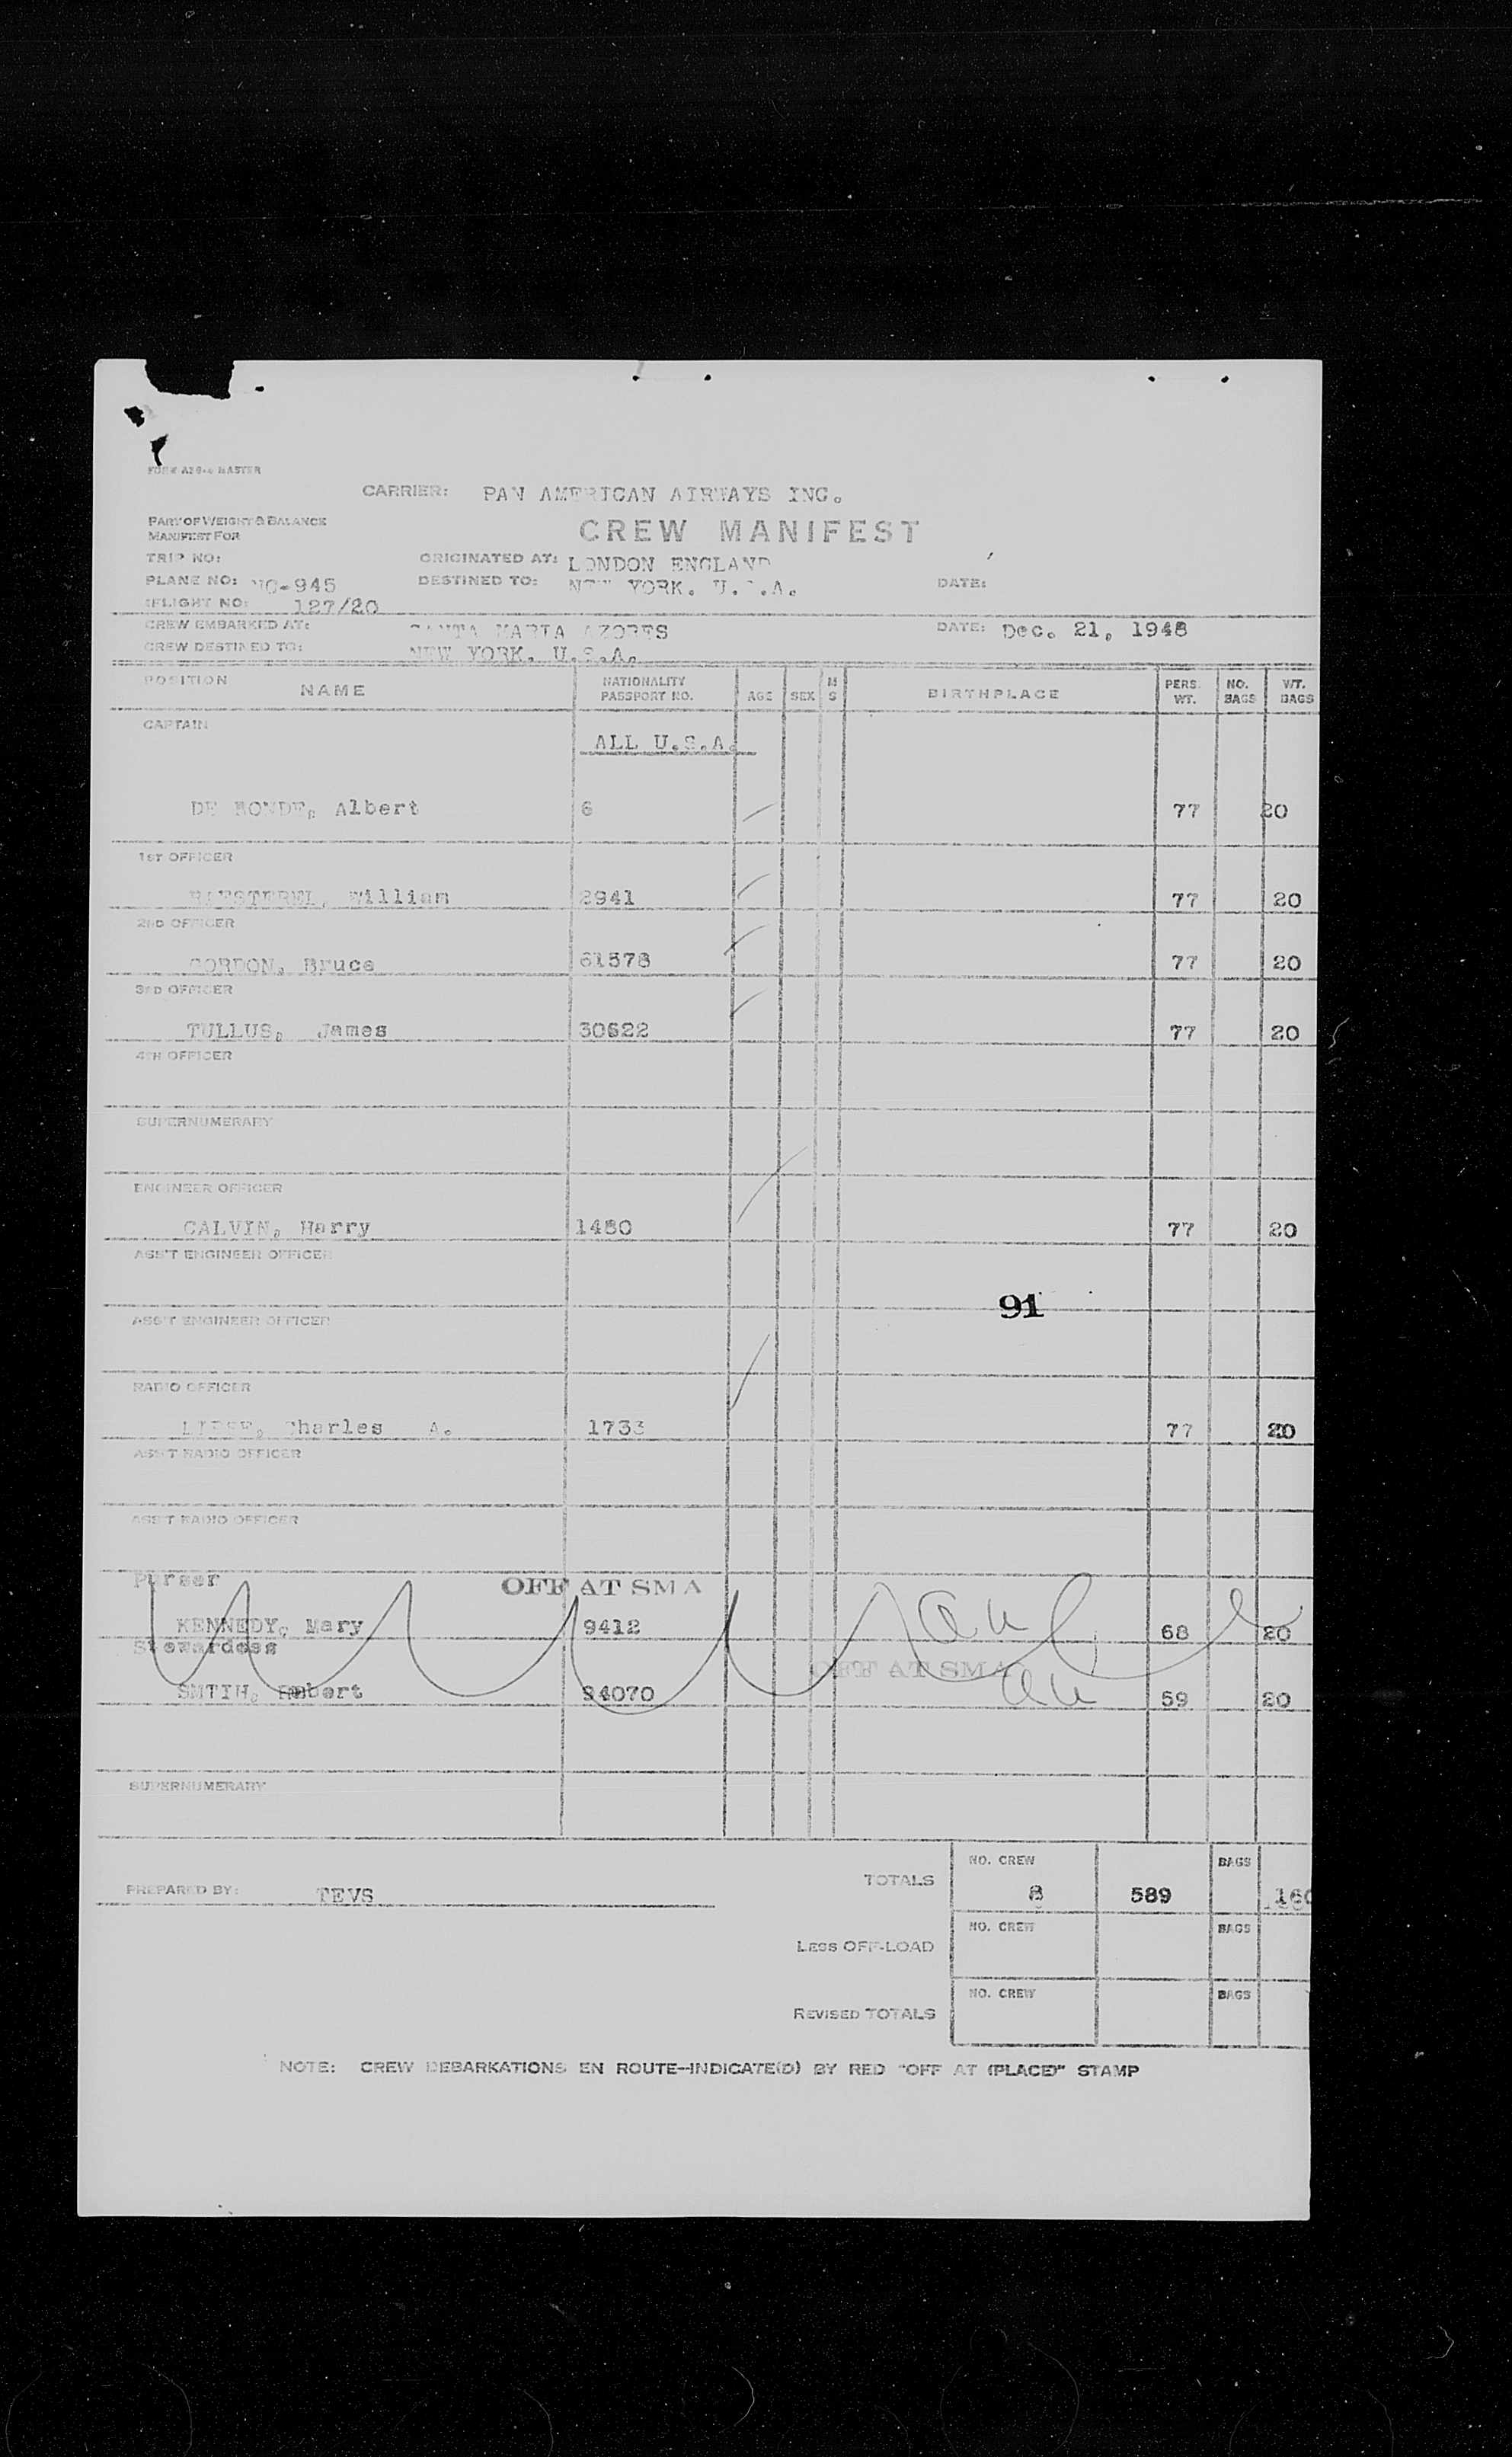 FORM A29-6 MASTER
CARRIER: PAN AMERICAN AIRWAYS INC.
PART OF WEIGHT & BALANCE
MANIFEST FOR
CREW MANIFEST
TRIP NO: ORIGINATED AT: LONDON ENGLAND
PLANE NO: NC-945 DESTINED TO: NEW YORK. U.S.A. DATE:
FLIGHT NO: 127/20
CREW EMBARKED AT: SANTA MARIA AZORES DATE: Dec. 21, 1948
CREW DESTINED TO: NEW YORK. U.S.A.
POSITION NAME NATIONALITY PASSPORT NO. AGE SEX M S BIRTHPLACE PERS. WT. NO. BAGS WT. BAGS
CAPTAIN
ALL U.S.A.
DE Albert 6 77 20
1ST OFFICER
William 2941 77 20
2ND OFFICER
GORDON, Bruce 61578 77 20
3RD OFFICER
TULLUS, James 30622 77 20
4TH OFFICER
SUPERNUMERARY
ENGINEER OFFICER
CALVIN, Harry 1480 77 20
ASS'T ENGINEER OFFICER
91
ASS'T ENGINEER OFFICER
RADIO OFFICER
Charles A. 1733 77 20
ASS'T RADIO OFFICER
ASS'T RADIO OFFICER
Purser OFF AT SMA
KENNEDY, Mary 9412 68 20
Stewardess
OFF AT SMA
SMTIH, Robert 94070 59 20
SUPERNUMERARY
TOTALS NO. CREW 8 589 BAGS 160
PREPARED BY: TEVS
LESS OFF-LOAD NO. CREW BAGS
REVISED TOTALS NO. CREW BAGS
NOTE: CREW DEBARKATIONS EN ROUTE-INDICATE(D) BY RED "OFF AT (PLACE)" STAMP